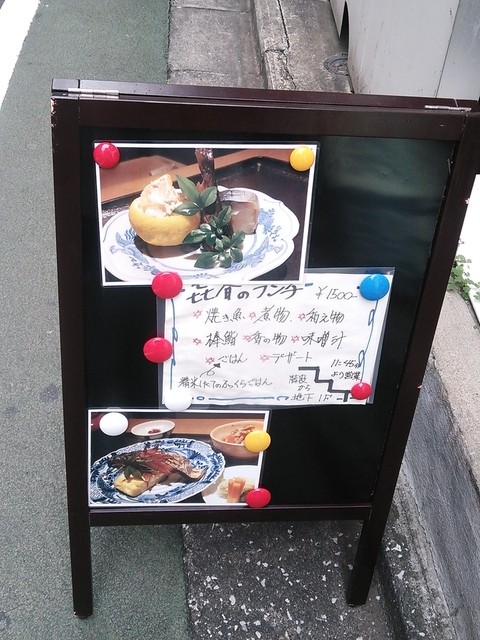 のランチ ¥1500-
焼き魚 煮物 和え物
棒鮨 香の物 味噌汁
ごはん デザート
精米したてのふっくらごはん
11:45 より営業
階段
から
地下1F